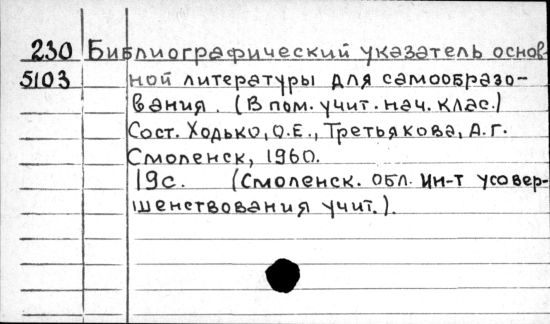 230 Библиографический указатель основ-
5103 ной литературы для самообразо-
вания. (В пом. учит. нач. клас.)
Сост. Ходько, О.Е., Третьякова, А.Г.
Смоленск, 1960.
19с. (Смоленск. обл. ин-т усовер-
шенствования учит.).